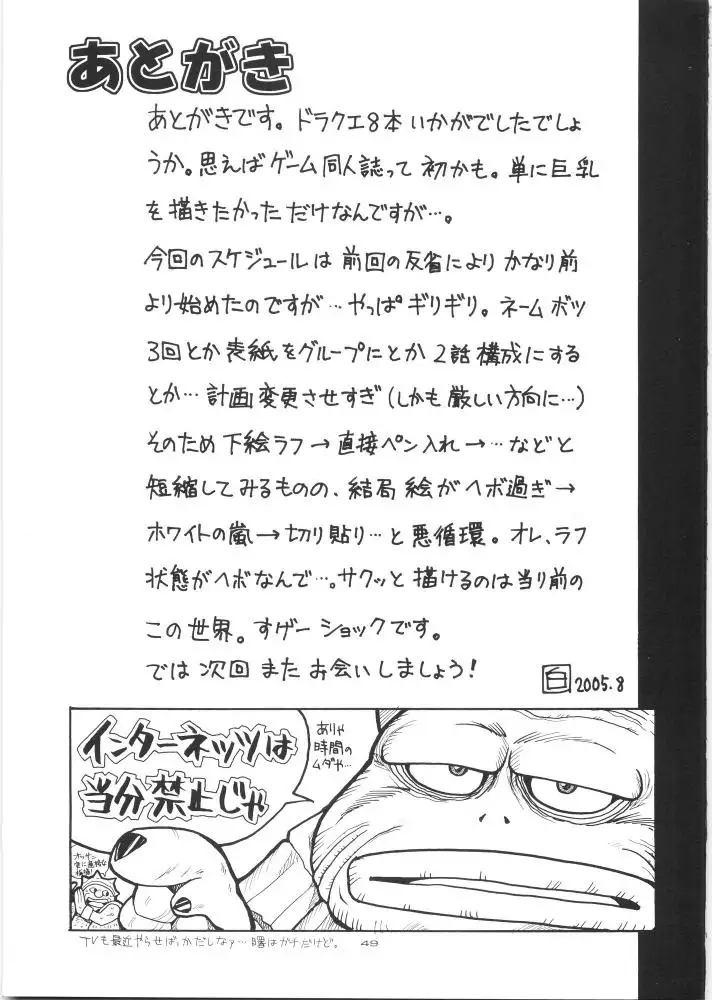 あとがき
あとがきです。ドラクエ8本いかがでしたでしょ
うか。思えばゲーム同人誌って初かも。単に巨乳
を描きたかっただけなんですが…。
今回のスケジュールは前回の反省によりかなり前
より始めたのですが…やっぱギリギリ。ネームボツ
3回とか表紙をグループにとか2話構成にする
とか…計画変更させすぎ(しかも厳しい方向に…)
そのため下絵ラフ→直接ペン入れ→…などと
短縮してみるものの、結局絵がヘボ過ぎ→
ホワイトの嵐→切り貼り…と悪循環。オレ、ラフ
状態がヘボなんで…。サクッと描けるのは当り前の
この世界。すゲーショックです。
では次回またお会いしましょう!
2005.8
インターネッツは
当分禁止じゃ
ありゃ
時間の
ムダや…
オッサン
TVも最近やらせばっかだしなァ…曙はガチだけど。
49